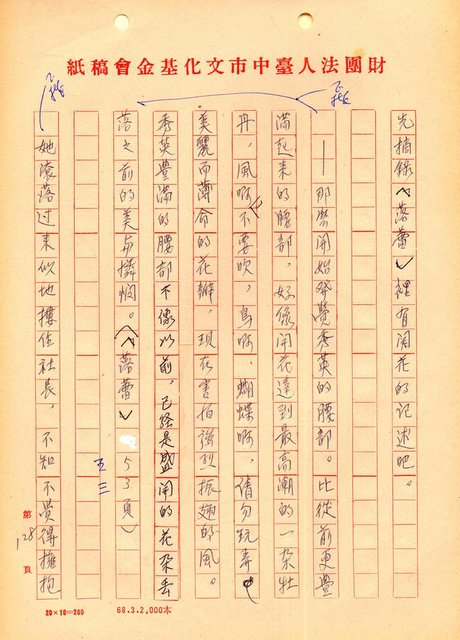 財團法人臺中市文化基金會稿紙
先摘錄《落蕾》裡有関花的记述吧。
——那麼開始發覺秀英的腰部。比從前更豐
滿起来的腰部，好像開花達到最高潮的一朶牡
丹，風啊不要吹，鳥啊．蝴蝶啊，請勿玩弄
美麗而薄命的花瓣，現在害怕強烈振翅的風。
秀英豐滿的腰部不像以前，已経是盛開的花朶丢
落之前的美与憐憫。（《落蕾》53頁）
五三
她滾落过来似地摟住社長，不知不覺得擁抱
第128頁
20×10=200
68.3.2,000本